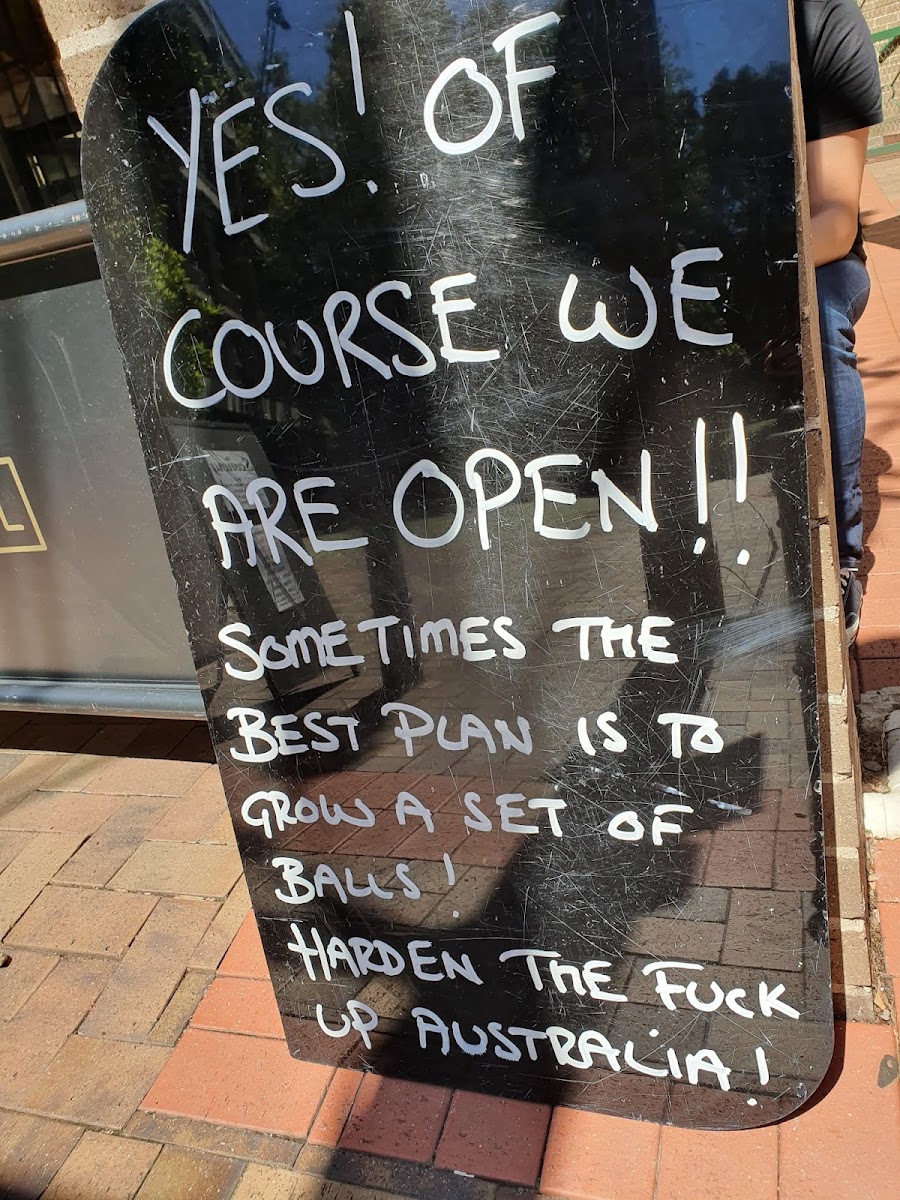 YES! OF
COURSE WE
ARE OPEN!!
SOMETIMES THE
BEST PLAN IS TO
GROW A SET OF
BALLS!
HARDEN THE FUCK
UP AUSTRALIA!